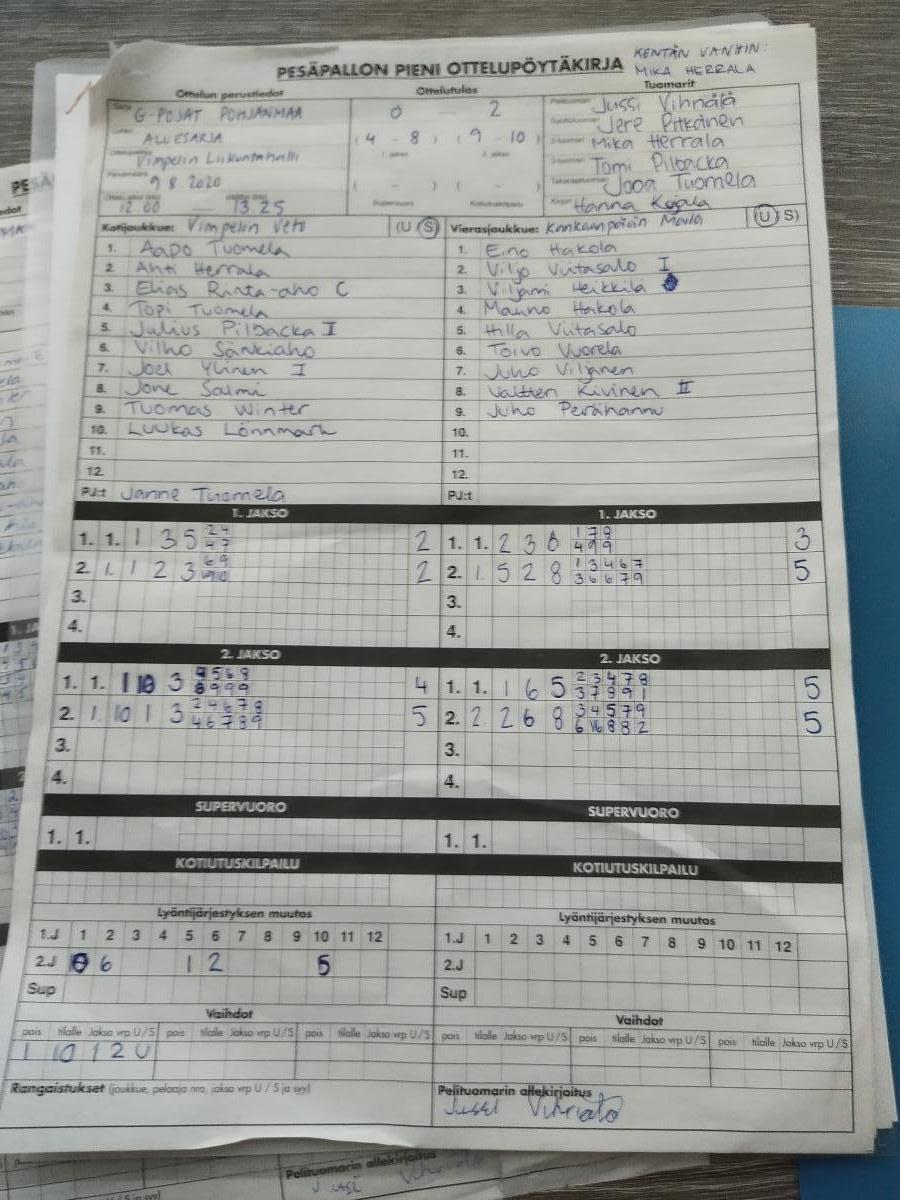 PESÄPALLON PIENI OTTELUPÖYTÄKIRJA
KENTÄN VANHIN:
MIKA HERRALA
Ottelun perustiedot
Ottelutulos
Tuomarit
G-POJAT POHJANMAA
0 — 2
Jussi Vihriälä
ALUESARJA
(4 - 8) (9 - 10)
Jere Pitkänen
Mika Herrala
Vimpelin Liikuntahalli
Tomi Pilbacka
9.8.2020
( - ) ( - )
Jooa Tuomela
12.00 — 13.25
Supervuoro Kotiutuskilpailu
Hanna Koala
Kotijoukkue: Vimpelin Veto (U S)
1. Aapo Tuomela
2. Ahti Herrala
3. Elias Rinta-aho C
4. Topi Tuomela
5. Julius Pilbacka I
6. Vilho Sänkiaho
7. Joel Ylinen I
8. Jone Salmi
9. Tuomas Winter
10. Luukas Lönnmark
11.
12.
PJ:t Janne Tuomela
Vierasjoukkue: Kankaanpään Maila (U S)
1. Eino Hakola
2. Viljo Viitasalo I
3. Viljami Heikkilä
4. Mauno Hakola
5. Hilla Viitasalo
6. Toivo Vuorela
7. Juho Viljanen
8. Valtteri Kivinen II
9. Juho Perähannu
10.
11.
12.
PJ:t
1. JAKSO
1. 1. 1 3 5 2
2. 1. 1 2 3 2
3.
4.
1. JAKSO
1. 1. 2 3 6 1 7 8 3
4 9 9
2. 1. 5 2 8 1 3 4 6 7 5
3 6 6 7 9
3.
4.
2. JAKSO
1. 1. 1 10 3 4
2. 1. 10 1 3 2 4 6 7 8 5
4 6 7 8 9
3.
4.
2. JAKSO
1. 1. 1 6 5 2 3 4 7 8 5
3 7 8 9 1
2. 2. 2 6 8 3 4 5 7 9 5
3.
4.
SUPERVUORO
1. 1.
SUPERVUORO
1. 1.
KOTIUTUSKILPAILU
KOTIUTUSKILPAILU
Lyöntijärjestyksen muutos
1.J 1 2 3 4 5 6 7 8 9 10 11 12
2.J 6 1 2 5
Sup
Lyöntijärjestyksen muutos
1.J 1 2 3 4 5 6 7 8 9 10 11 12
2.J
Sup
Vaihdot
pois tilalle Jakso vrp U/S pois tilalle Jakso vrp U/S pois tilalle Jakso vrp U/S
1 10 1 2 U
Vaihdot
pois tilalle Jakso vrp U/S pois tilalle Jakso vrp U/S pois tilalle Jakso vrp U/S
Rangaistukset (joukkue, pelaaja nro, jakso vrp U / S ja syy)
Pelituomarin allekirjoitus
Jussi Vihriälä
Pelituomarin allekirjoitus